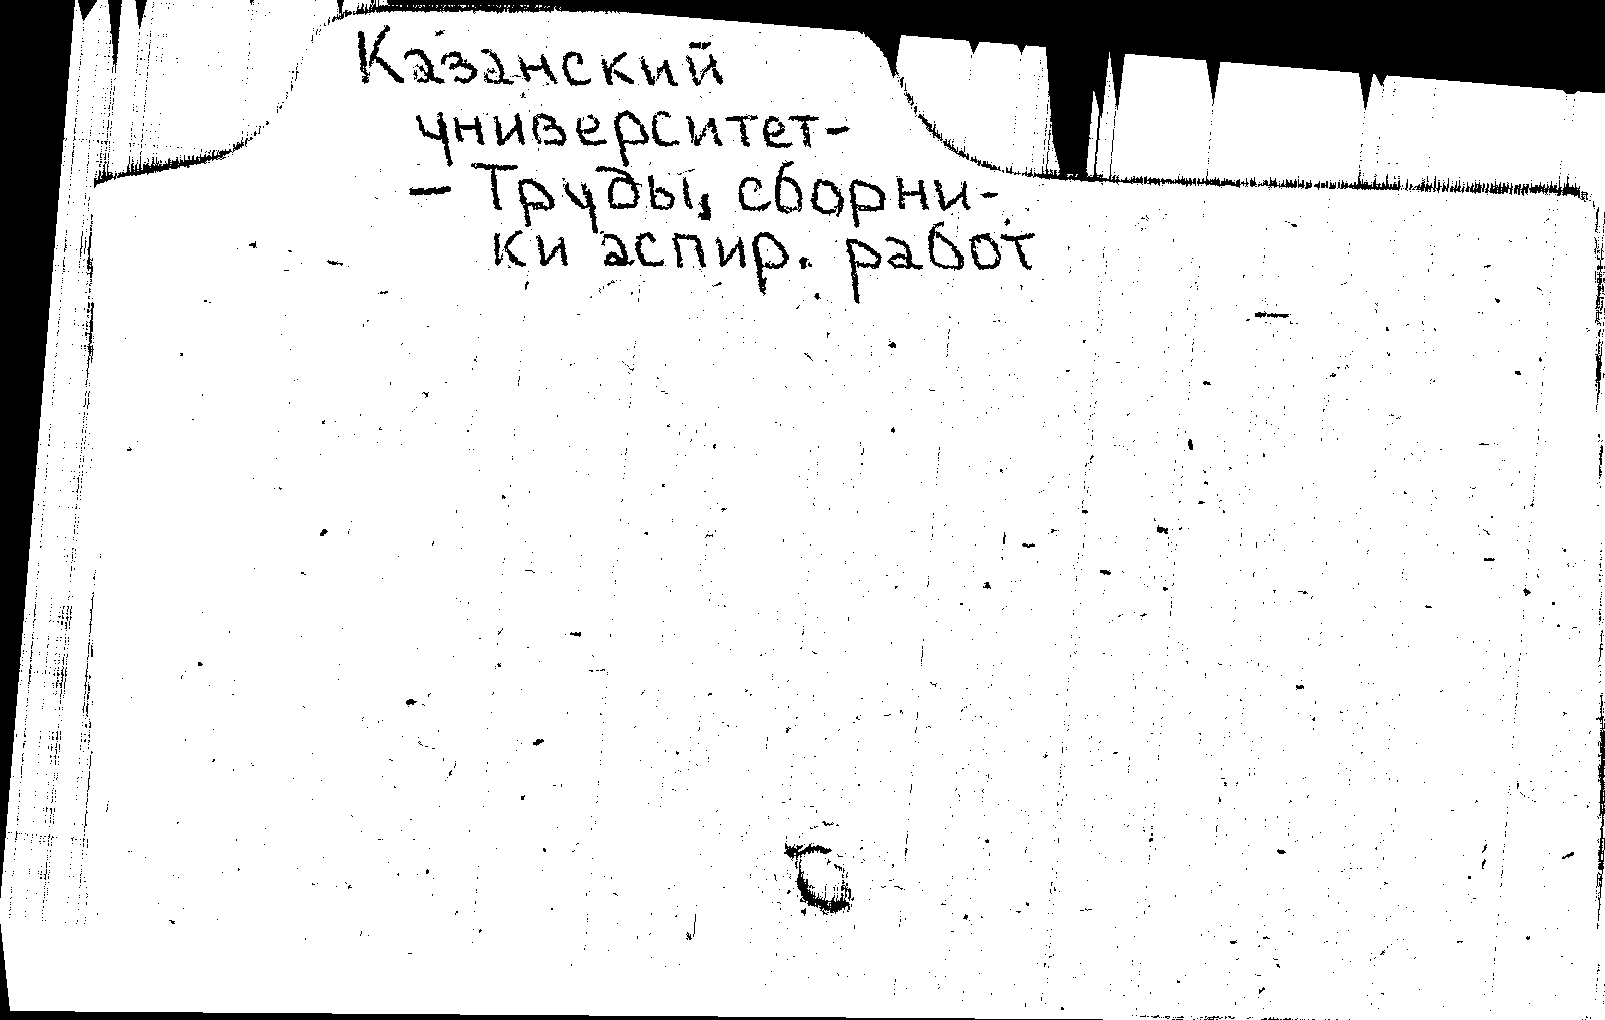 Казанский
университет-
- Труды, сборни-
ки аспир. работ